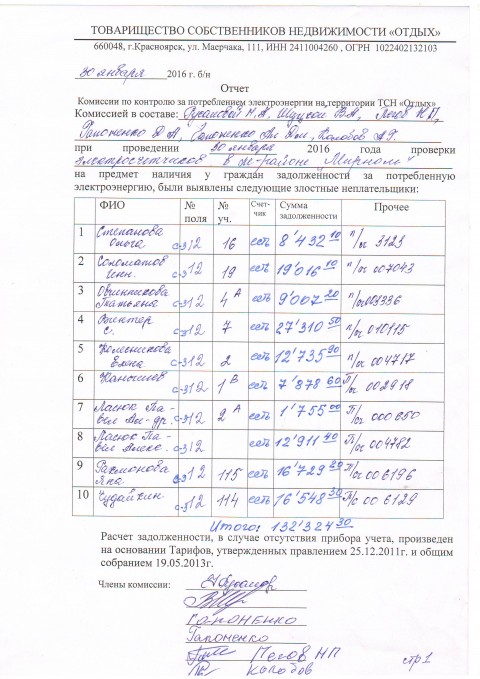 ТОВАРИЩЕСТВО СОБСТВЕННИКОВ НЕДВИЖИМОСТИ «ОТДЫХ»
660048, г.Красноярск, ул. Маерчака, 111, ИНН 2411004260 , ОГРН 1022402132103
30 января 2016 г. б/н
Отчет
Комиссии по контролю за потреблением электроэнергии на территории ТСН «Отдых»
Комиссией в составе: Русаковой Н.А,
Гапоненко Д А, Гапоненко
при проведении 30 января 2016 года проверки
электросчетчиков в ж-районе Мирном"
на предмет наличия у граждан задолженности за потребленную
электроэнергию, были выявлены следующие злостные неплательщики:
ФИО № поля № уч. Счет-чик Сумма задолженности Прочее
1 Степанова Ольга с-з12 16 есть 8'432 10 п/сч 3123
2 Соломатов с-з12 19 есть 19'016 10 п/сч 007043
3 Овчинникова Татьяна с-з12 4 А есть 9'007 20 п/сч
4 Винтер С. с-з12 7 есть 27'310 50 п/сч 010115
5 Колесникова Елена с-з12 2 есть 12'735 90 п/сч 004717
6 с-з12 1 В есть 7'878 60 П/сч 002918
7 Ласюк Павел Алек-др. с-з12 2 А есть 1'755 00 П/сч 000650
8 Ласюк Павел Алекс. с-з12 12'911 40 П/сч 004782
9 Рахмонова Яна с-з12 115 есть 16'729 20 П/сч 006196
10 Чудайкин с-з12 114 есть 16'548 30 П/с 006129
Итого: 132'324 30
Расчет задолженности, в случае отсутствия прибора учета, произведен
на основании Тарифов, утвержденных правлением 25.12.2011г. и общим
собранием 19.05.2013г.
Члены комиссии:
Гапоненко
Гапоненко
Пегов НП
Колодов
стр 1